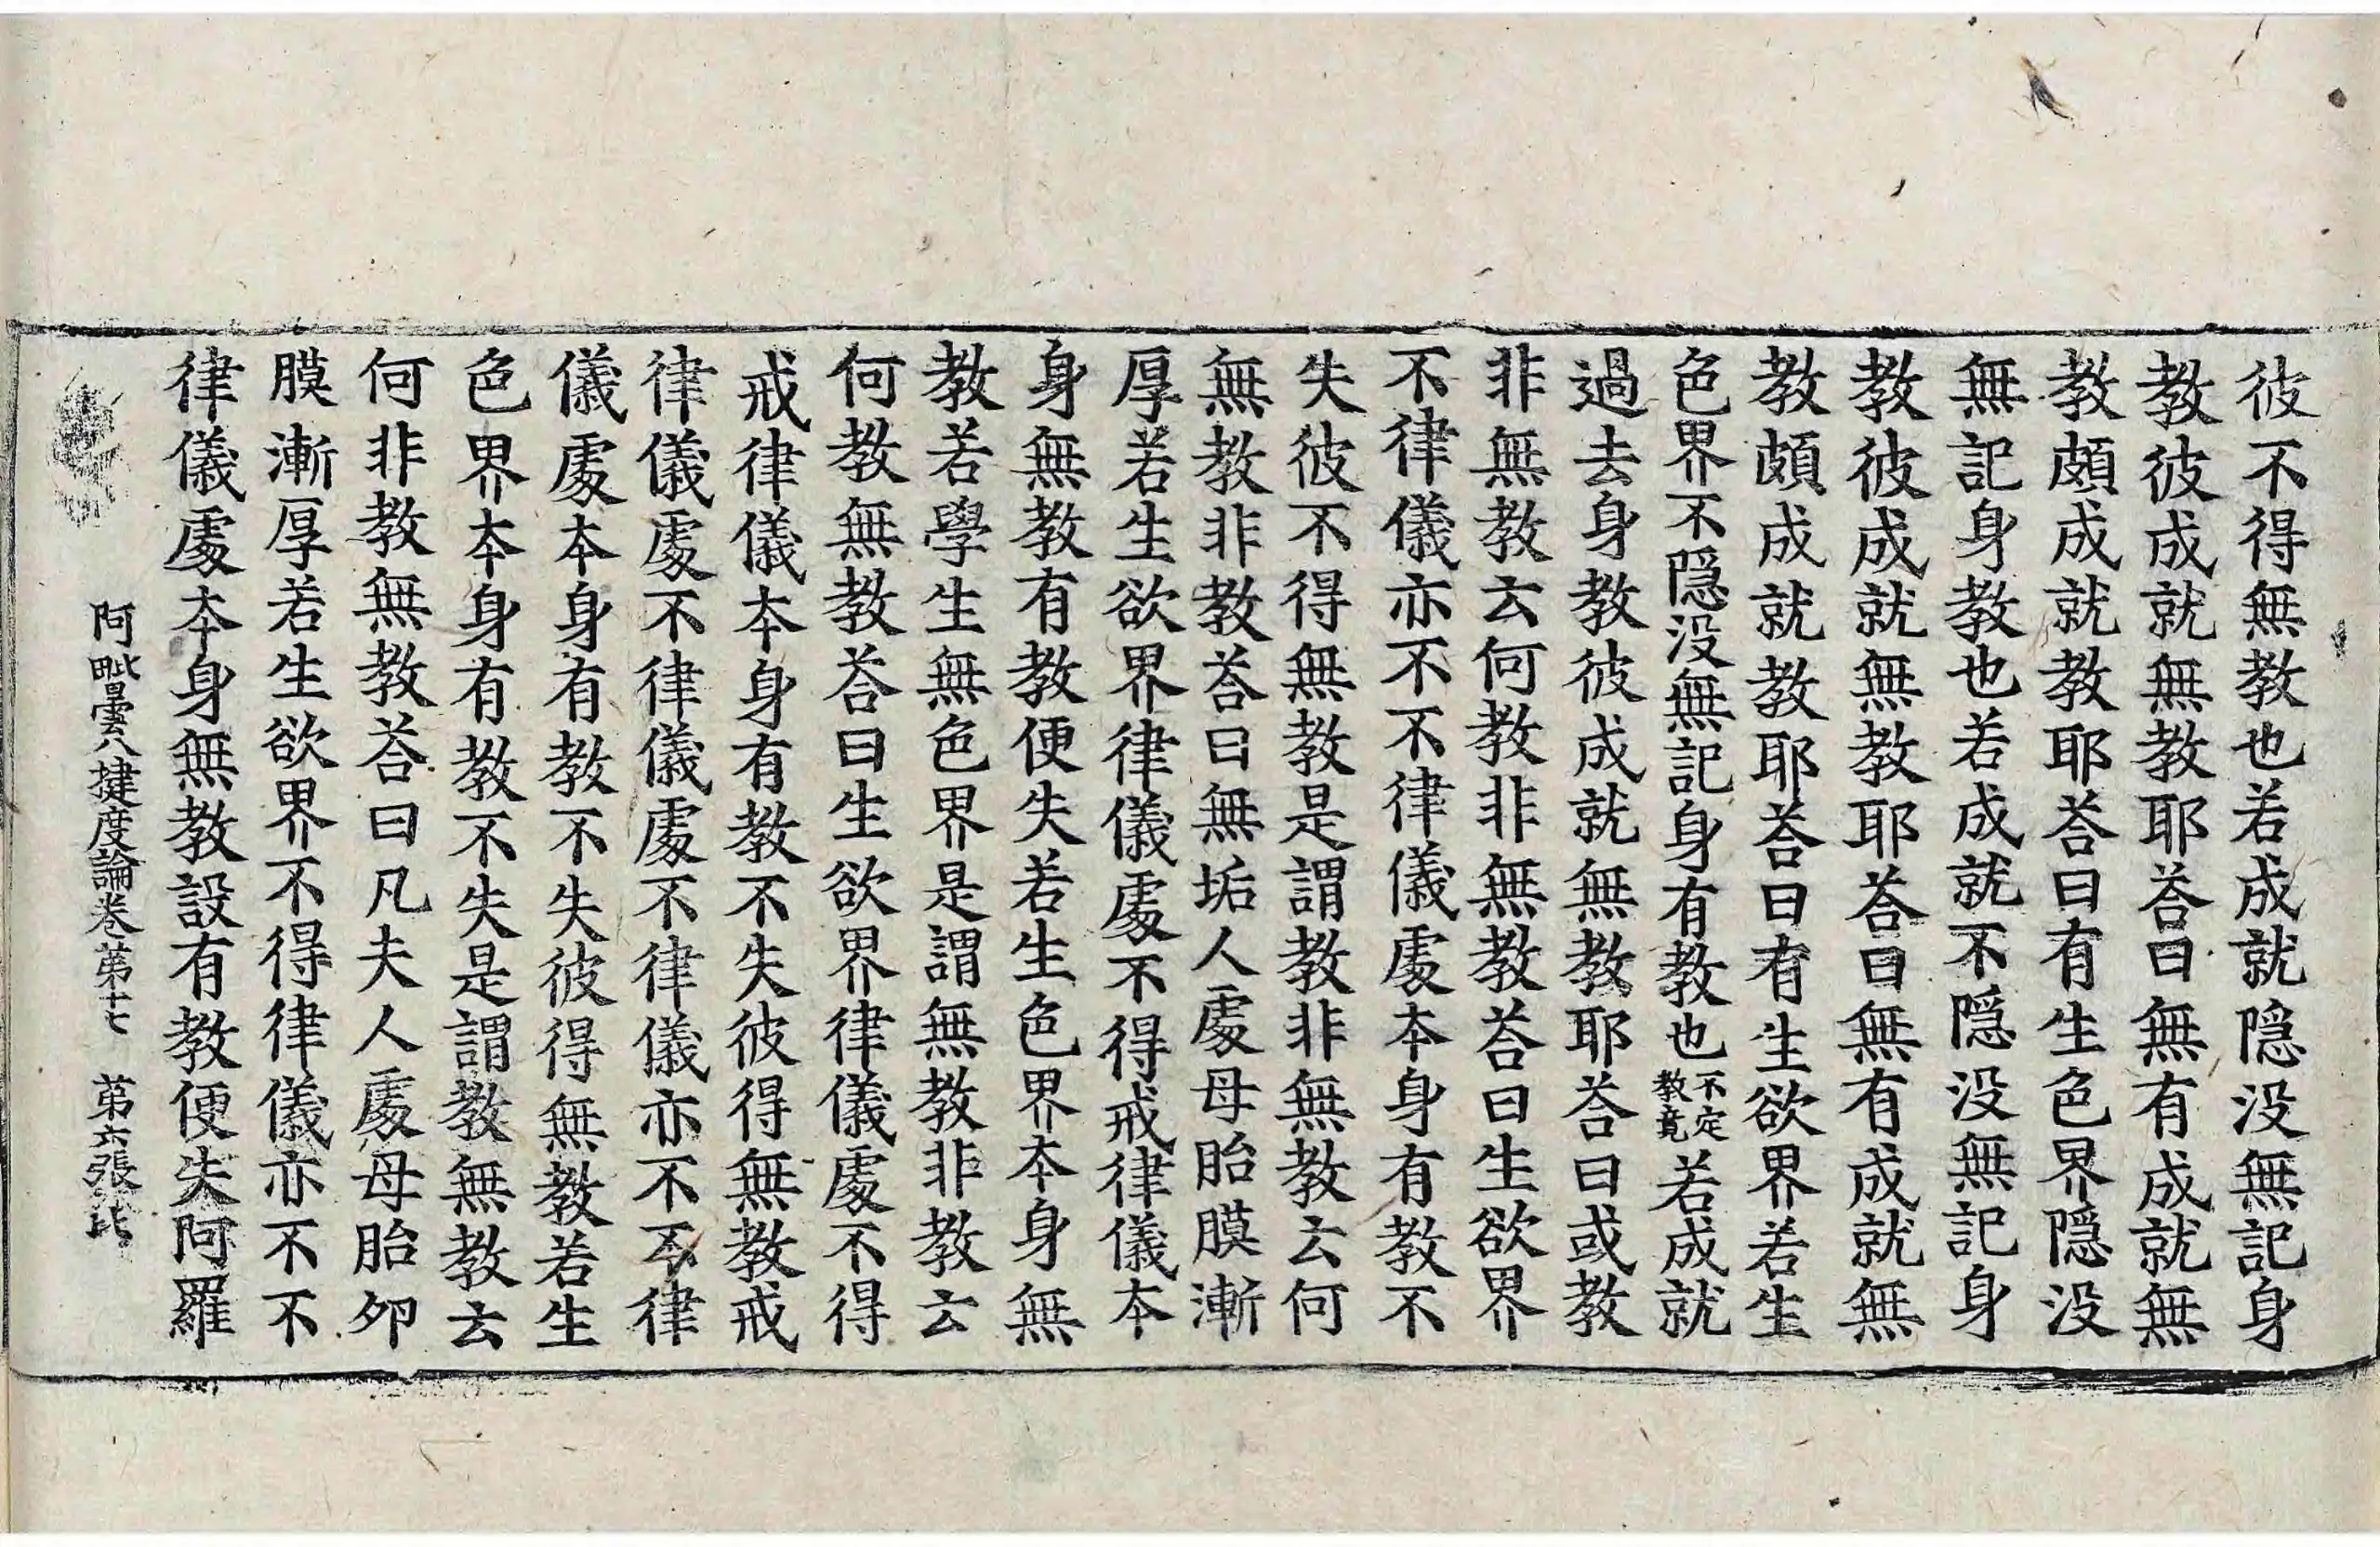 彼不得無教也若成就隠没無記身
教彼成就無教耶荅曰無有成就無
教頗成就教耶荅曰有生色界隠没
無記身教也若成就不隠没無記身
教彼成就無教耶荅曰無有成就無
教頗成就教耶荅曰有生欲界若生
色界不隠没無記身有教也不定教竟若成就
過去身教彼成就無教耶荅曰或教
非無教云何教非無教荅曰生欲界
不律儀亦不不律儀處本身有教不
失彼不得無教是謂教非無教云何
無教非教荅曰無垢人處母胎膜漸
厚若生欲界律儀處不得戒律儀本
身無教有教便失若生色界本身無
教若學生無色界是謂無教非教云
何教無教荅曰生欲界律儀處不得
戒律儀本身有教不失彼得無教戒
律儀處不律儀處不律儀亦不不律
儀處本身有教不失彼得無教若生
色界本身有教不失是謂教無教云
何非教無教荅曰凡夫人處母胎夘
膜漸厚若生欲界不得律儀亦不不
律儀處本身無教設有教便失阿羅
阿毗曇八揵度論卷苐十七 苐六張